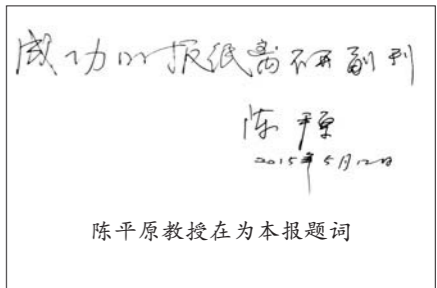 成功的报纸离不开副刊
陈平原
2015年5月12日
陈平原教授在为本报题词